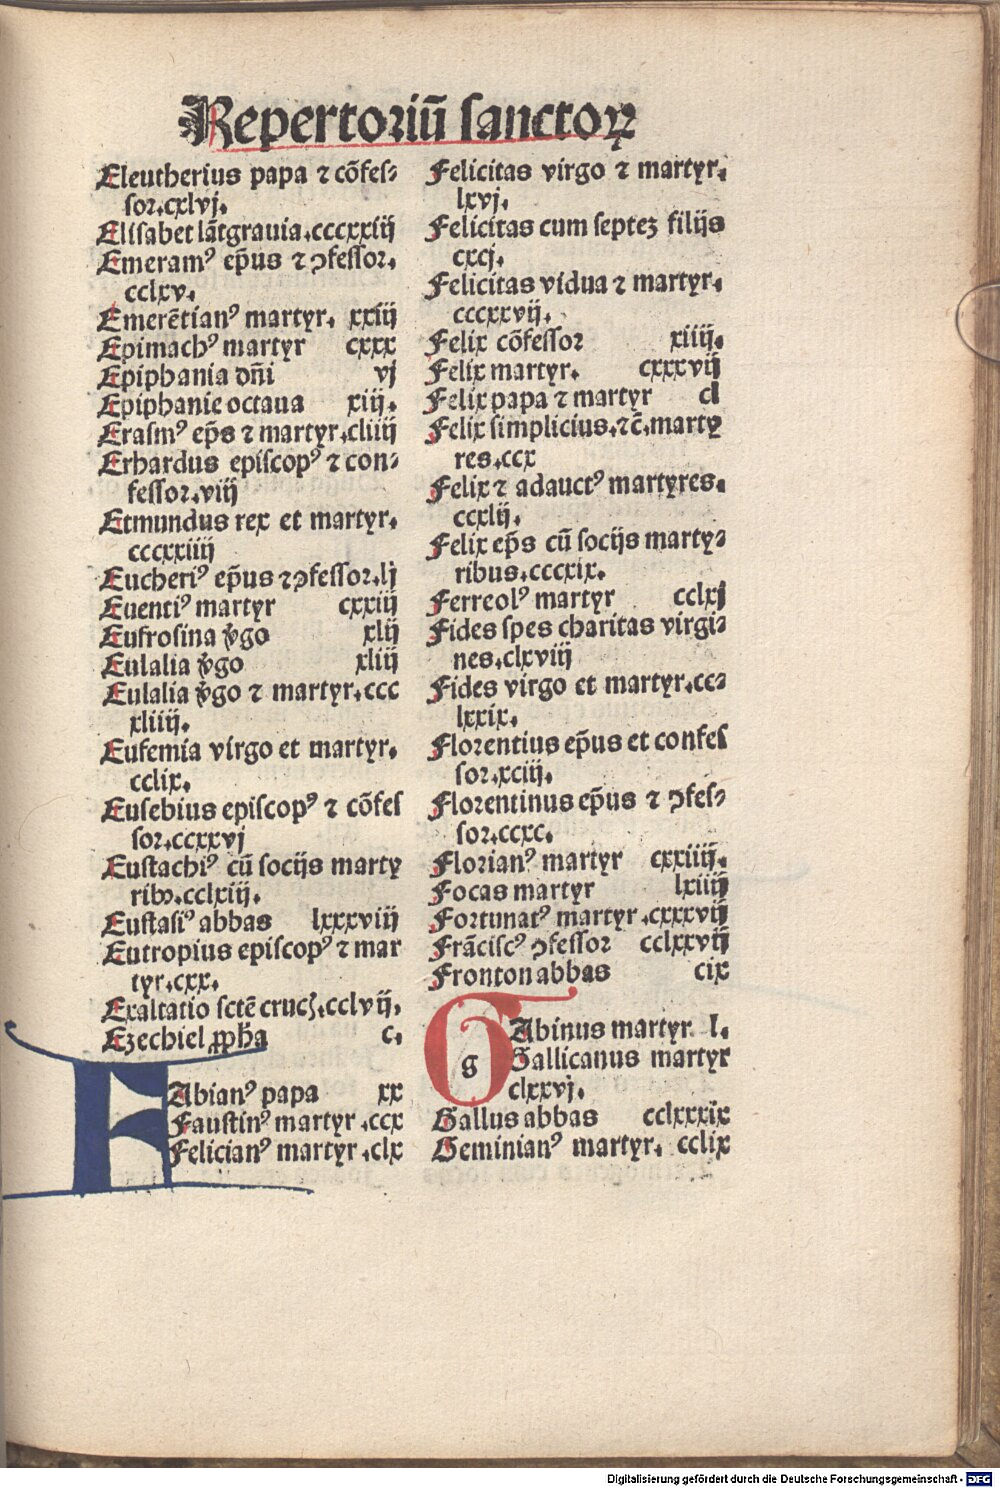 Repertoriū sanctoꝝ
Eleutherius papa ⁊ cōfes⸗
sor.cxlvj.
Elisabet lātgrauia.cccxxiij
Emeramꝰ ep̄us ⁊ ꝯfessor.
cclxv.
Emerētianꝰ martyr. xxiij
Epimachꝰ martyr cxxx
Epiphania dn̄i vj
Epiphanie octaua xiij.
Erasmꝰ ep̄s ⁊ martyr.cliiij
Erhardus episcopꝰ ⁊ con⸗
fessor.viij
Etmundus rex et martyr.
cccxxiiij
Eucheriꝰ ep̄us ⁊ ꝯfessor.lj
Euentiꝰ martyr cxxiij
Eufrosina v̄go xlij
Eulalia v̄go xliij
Eulalia v̄go ⁊ martyr.ccc
xliiij.
Eufemia virgo et martyr.
cclix.
Eusebius episcopꝰ ⁊ cōfes
sor.ccxxvj
Eustachiꝰ cū socijs marty
ribꝰ.cclxiij.
Eustasiꝰ abbas lxxxviij
Eutropius episcopꝰ ⁊ mar
tyr.cxx.
Exaltatio sctē crucꝭ.cclvij.
Ezechiel ꝓpha c.
FAbianꝰ papa xx
Faustinꝰ martyr .ccx
Felicianꝰ martyr .clx
Felicitas virgo ⁊ martyr.
lxvj.
Felicitas cum septeꝫ filijs
cxcj.
Felicitas vidua ⁊ martyr.
cccxxvij.
Felix cōfessor xiiij.
Felix martyr. cxxxvij
Felix papa ⁊ martyr cl
Felix simplicius.⁊c̄.marty
res.ccx
Felix ⁊ adauctꝰ martyres.
ccxlij.
Felix ep̄s cū socijs marty⸗
ribus.cccxix.
Ferreolꝰ martyr cclxj
Fides spes charitas virgi⸗
nes.clxviij
Fides virgo et martyr.cc⸗
lxxix.
Florentius ep̄us et confes
sor.xciij.
Florentinus ep̄us ⁊ ꝯfes⸗
sor.ccxc.
Florianꝰ martyr cxxiiij.
Focas martyr lxiiij
Fortunatꝰ martyr .cxxxvij
Frāciscꝰ ꝯfessor cclxxvij
Fronton abbas cix
g
GAbinus martyr l.
Gallicanus martyr
clxxvj.
Gallus abbas cclxxxix
Geminianꝰ martyr. cclix
Digitalisierung gefördert durch die Deutsche Forschungsgemeinschaft - DFG